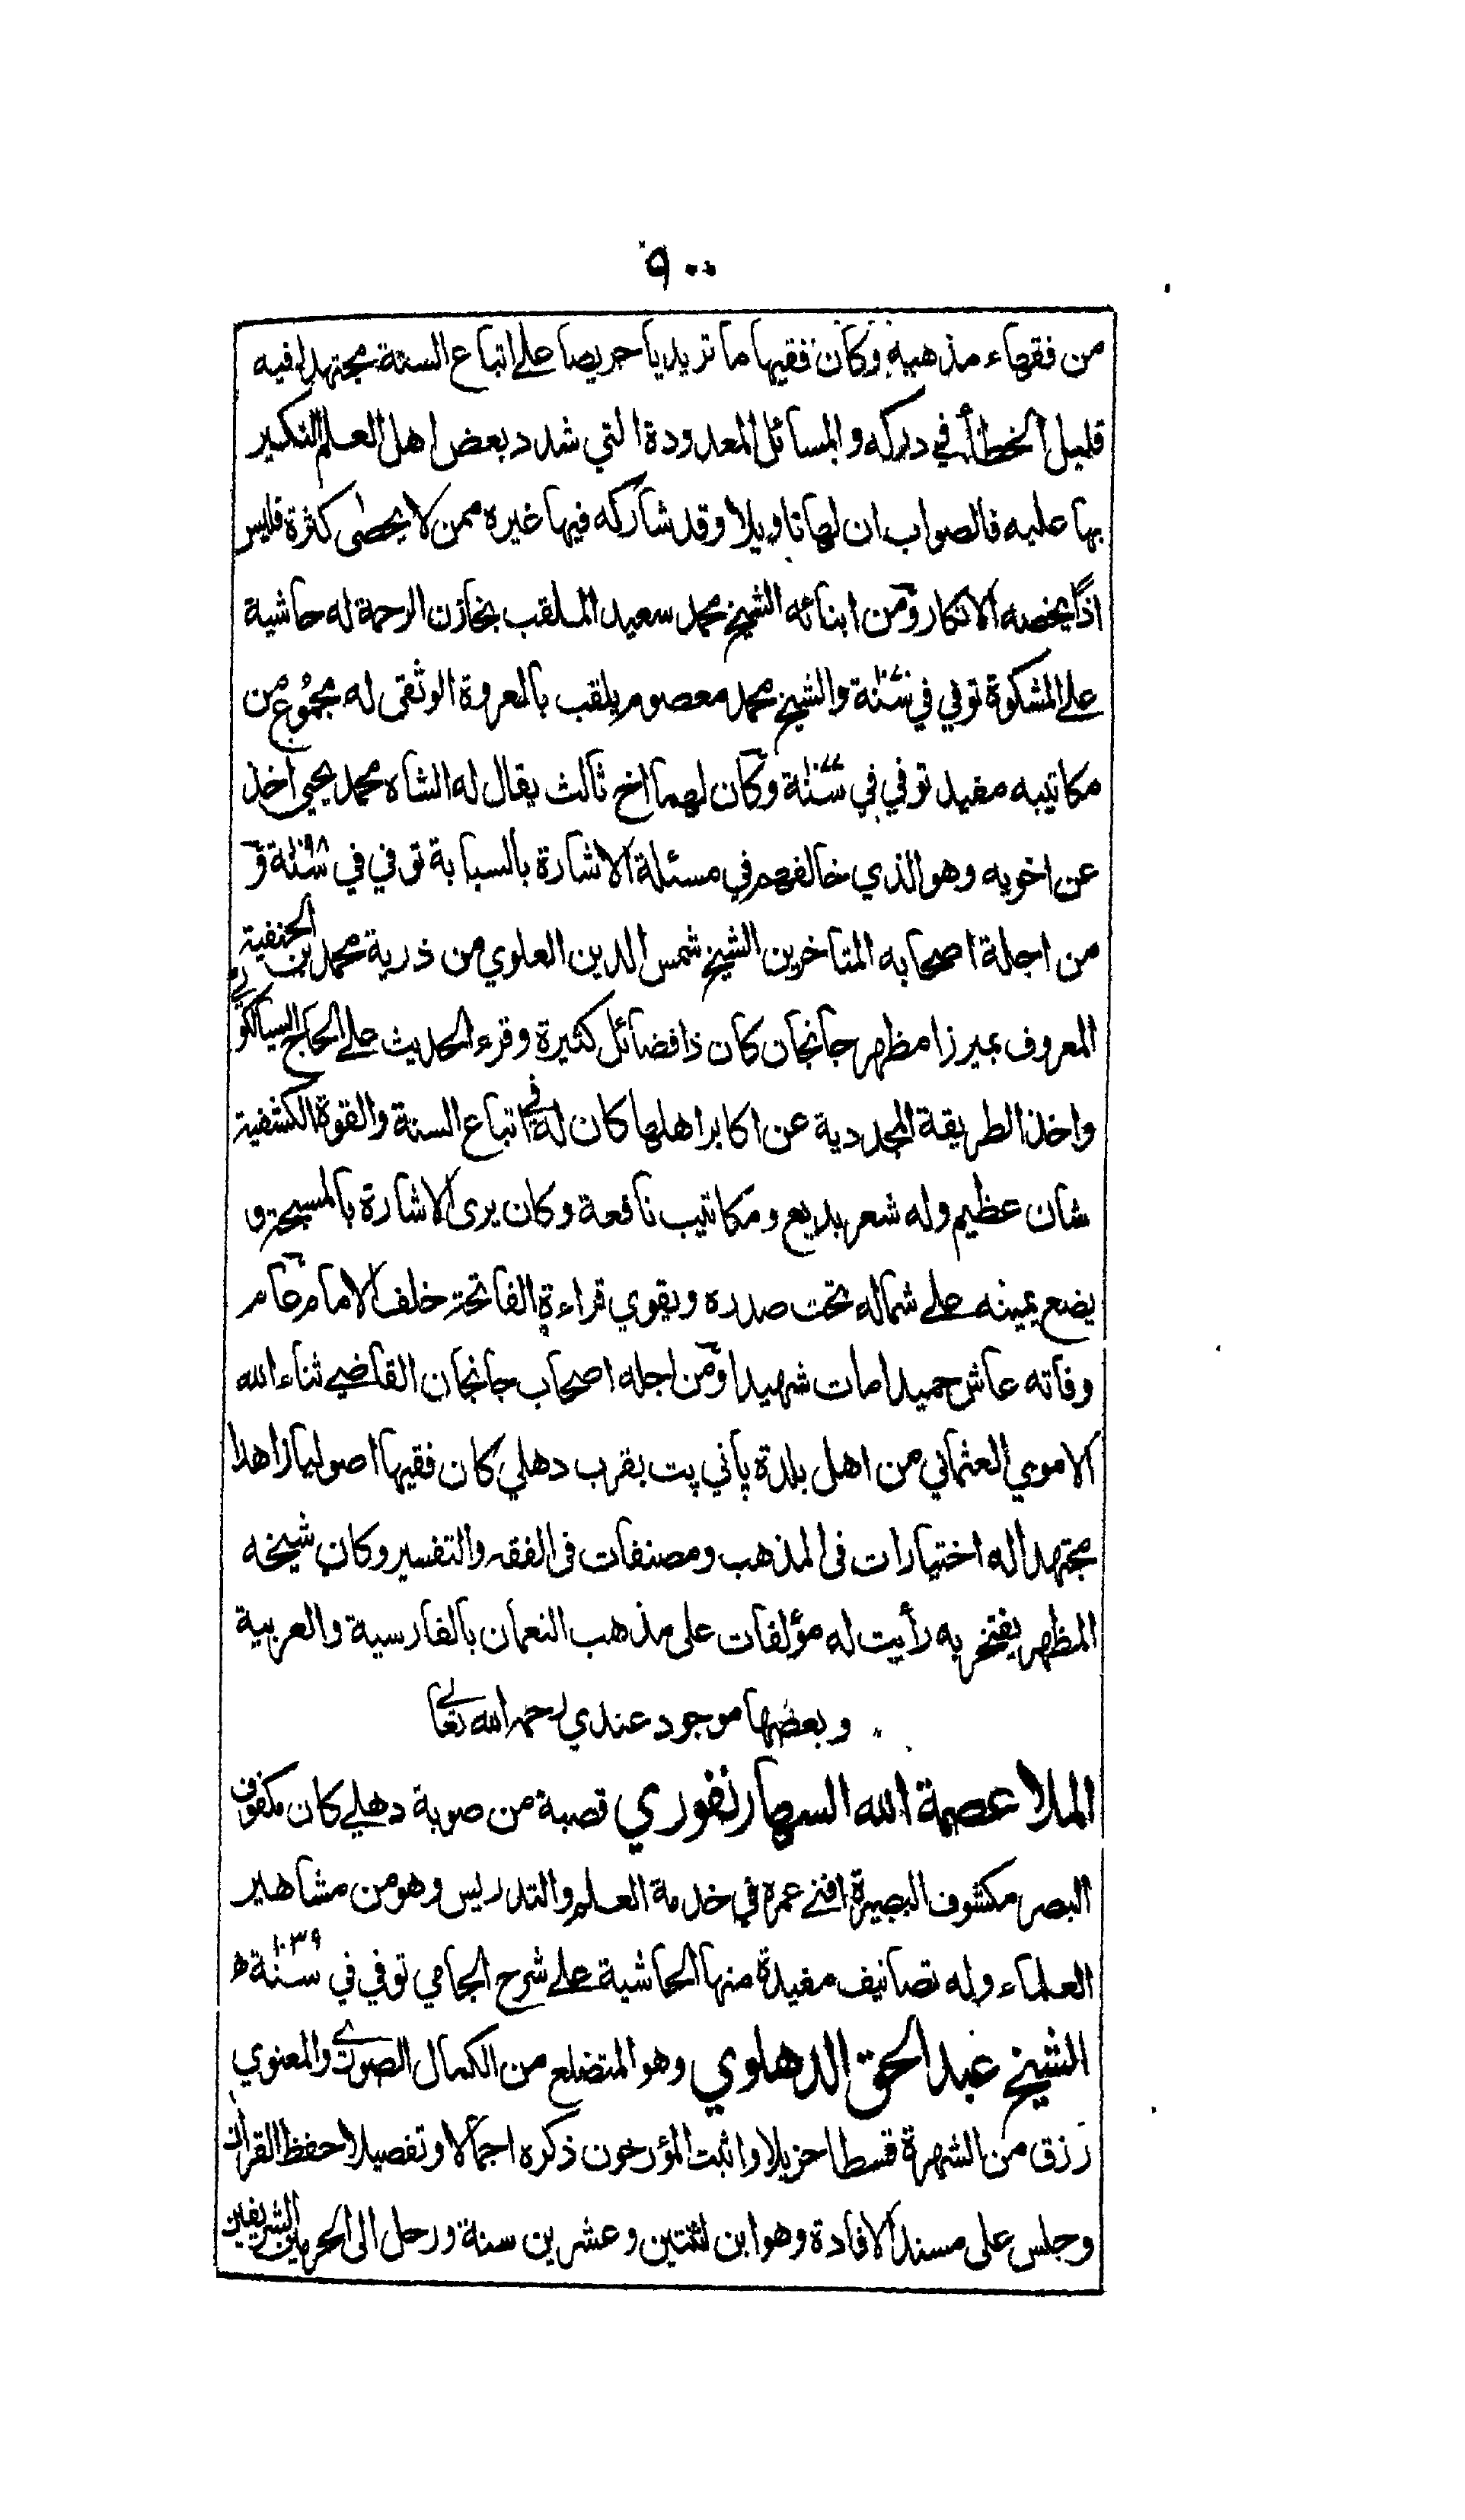 ٩٠٠
من فقهاء مذهبه وكان فقيها ما تريديا حريصا على اتباع السنة مجتهدا فيه
قليل الخطأ في دركه والمسائل المعدودة التي شدد بعض اهل العلم النكير
بها عليه فالصواب ان لها تاويلا وقد شاركه فيها غيره ممن لا يحصى كثرة فليس
اذًا يخصه الانكار ومن ابنائه الشيخ محمد سعيد الملقب بخازن الرحمة له حاشية
على المشكوة توفي في سنة والشيخ محمد معصوم يلقب بالعروة الوثقى له مجموع من
مكاتيبه مفيد توفي في سنة وكان لهما اخ ثالث يقال له الشاه محمد يحيى اخذ
عن اخويه وهو الذي خالفهم في مسئلة الاشارة بالسبابة توفي في سنة و
من اجلة اصحابه المتاخرين الشيخ شمس الدين العلوي من ذرية محمد بن الحنفية
المعروف بميرزا مظهر جانجان كان ذا فضائل كثيرة وقرء الحديث على الحاج السيالكوتي
واخذ الطريقة المجددية عن اكابر اهلها كان له في اتباع السنة والقوة الكشفية
شان عظيم وله شعر بديع ومكاتيب نافعة وكان يرى الاشارة بالمسبحة و
يضع يمينه على شماله تحت صدره ويقوي قراءة الفاتحة خلف الامام عام
وفاته عاش حميدا مات شهيدا ومن اجله اصحاب جانجان القاضي ثناء الله
الاموي العثماني من اهل بلدة پاني پت بقرب دهلي كان فقيها اصوليا زاهدا
مجتهدا له اختيارات في المذهب ومصنفات في الفقه والتفسير وكان شيخه
المظهر يفتخر به رأيت له مؤلفات على مذهب النعمان بالفارسية والعربية
وبعضها موجود عندي رحمه الله تعالى
الملا عصمة الله السهارنفوري قصبة من صوبة دهلي كان مكفوف
البصر مكشوف البصيرة افنى عمره في خدمة العلم والتدريس وهو من مشاهير
العلماء وله تصانيف مفيدة منها الحاشية على شرح الجامي توفي في سنة ١٠٣٩ ه
الشيخ عبد الحق الدهلوي وهو المتضلع من الكمال الصوري والمعنوي
رزق من الشهرة قسطا جزيلا واثبت المؤرخون ذكره اجمالا وتفصيلا حفظ القرآن
وجلس على مسند الافادة وهو ابن اثنتين وعشرين سنة ورحل الى الحرمين الشريفين